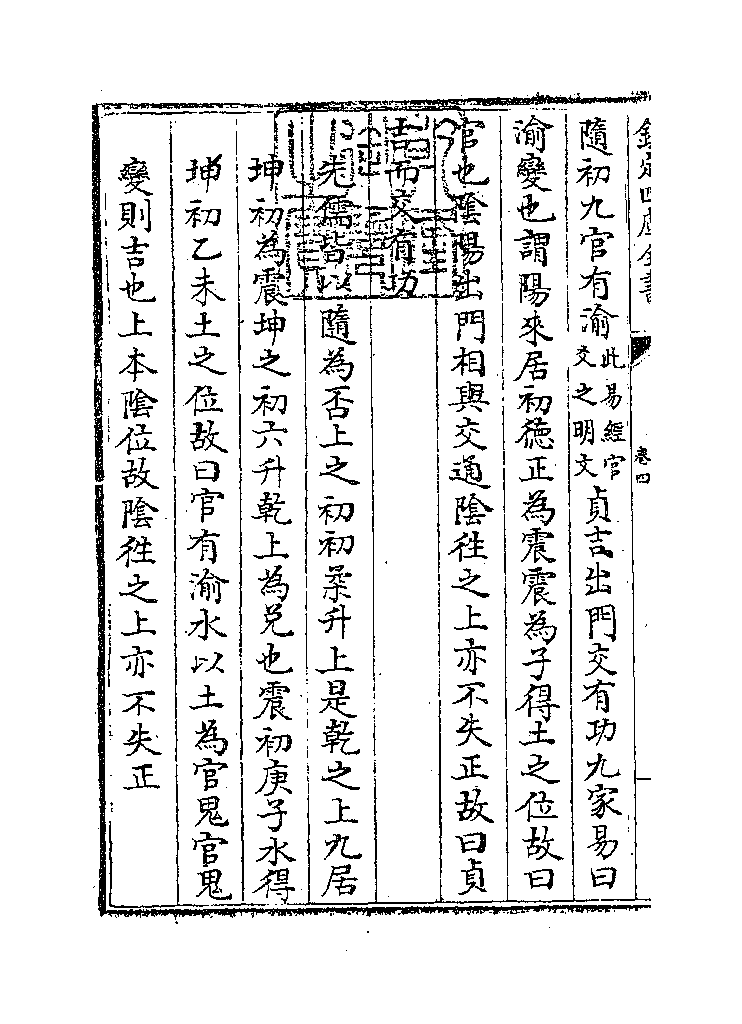 欽定四庫全書
卷四
隨初九官有渝此易經官爻之明文貞吉出門交有功九家易曰
渝變也謂陽來居初徳正為震震為子得土之位故曰
官也陰陽出門相與交通陰徃之上亦不失正故曰貞
吉而交有功
先儒皆以隨為否上之初初柔升上是乾之上九居
坤初為震坤之初六升乾上為兌也震初庚子水得
坤初乙未土之位故曰官有渝水以土為官鬼官鬼
變則吉也上本陰位故陰徃之上亦不失正